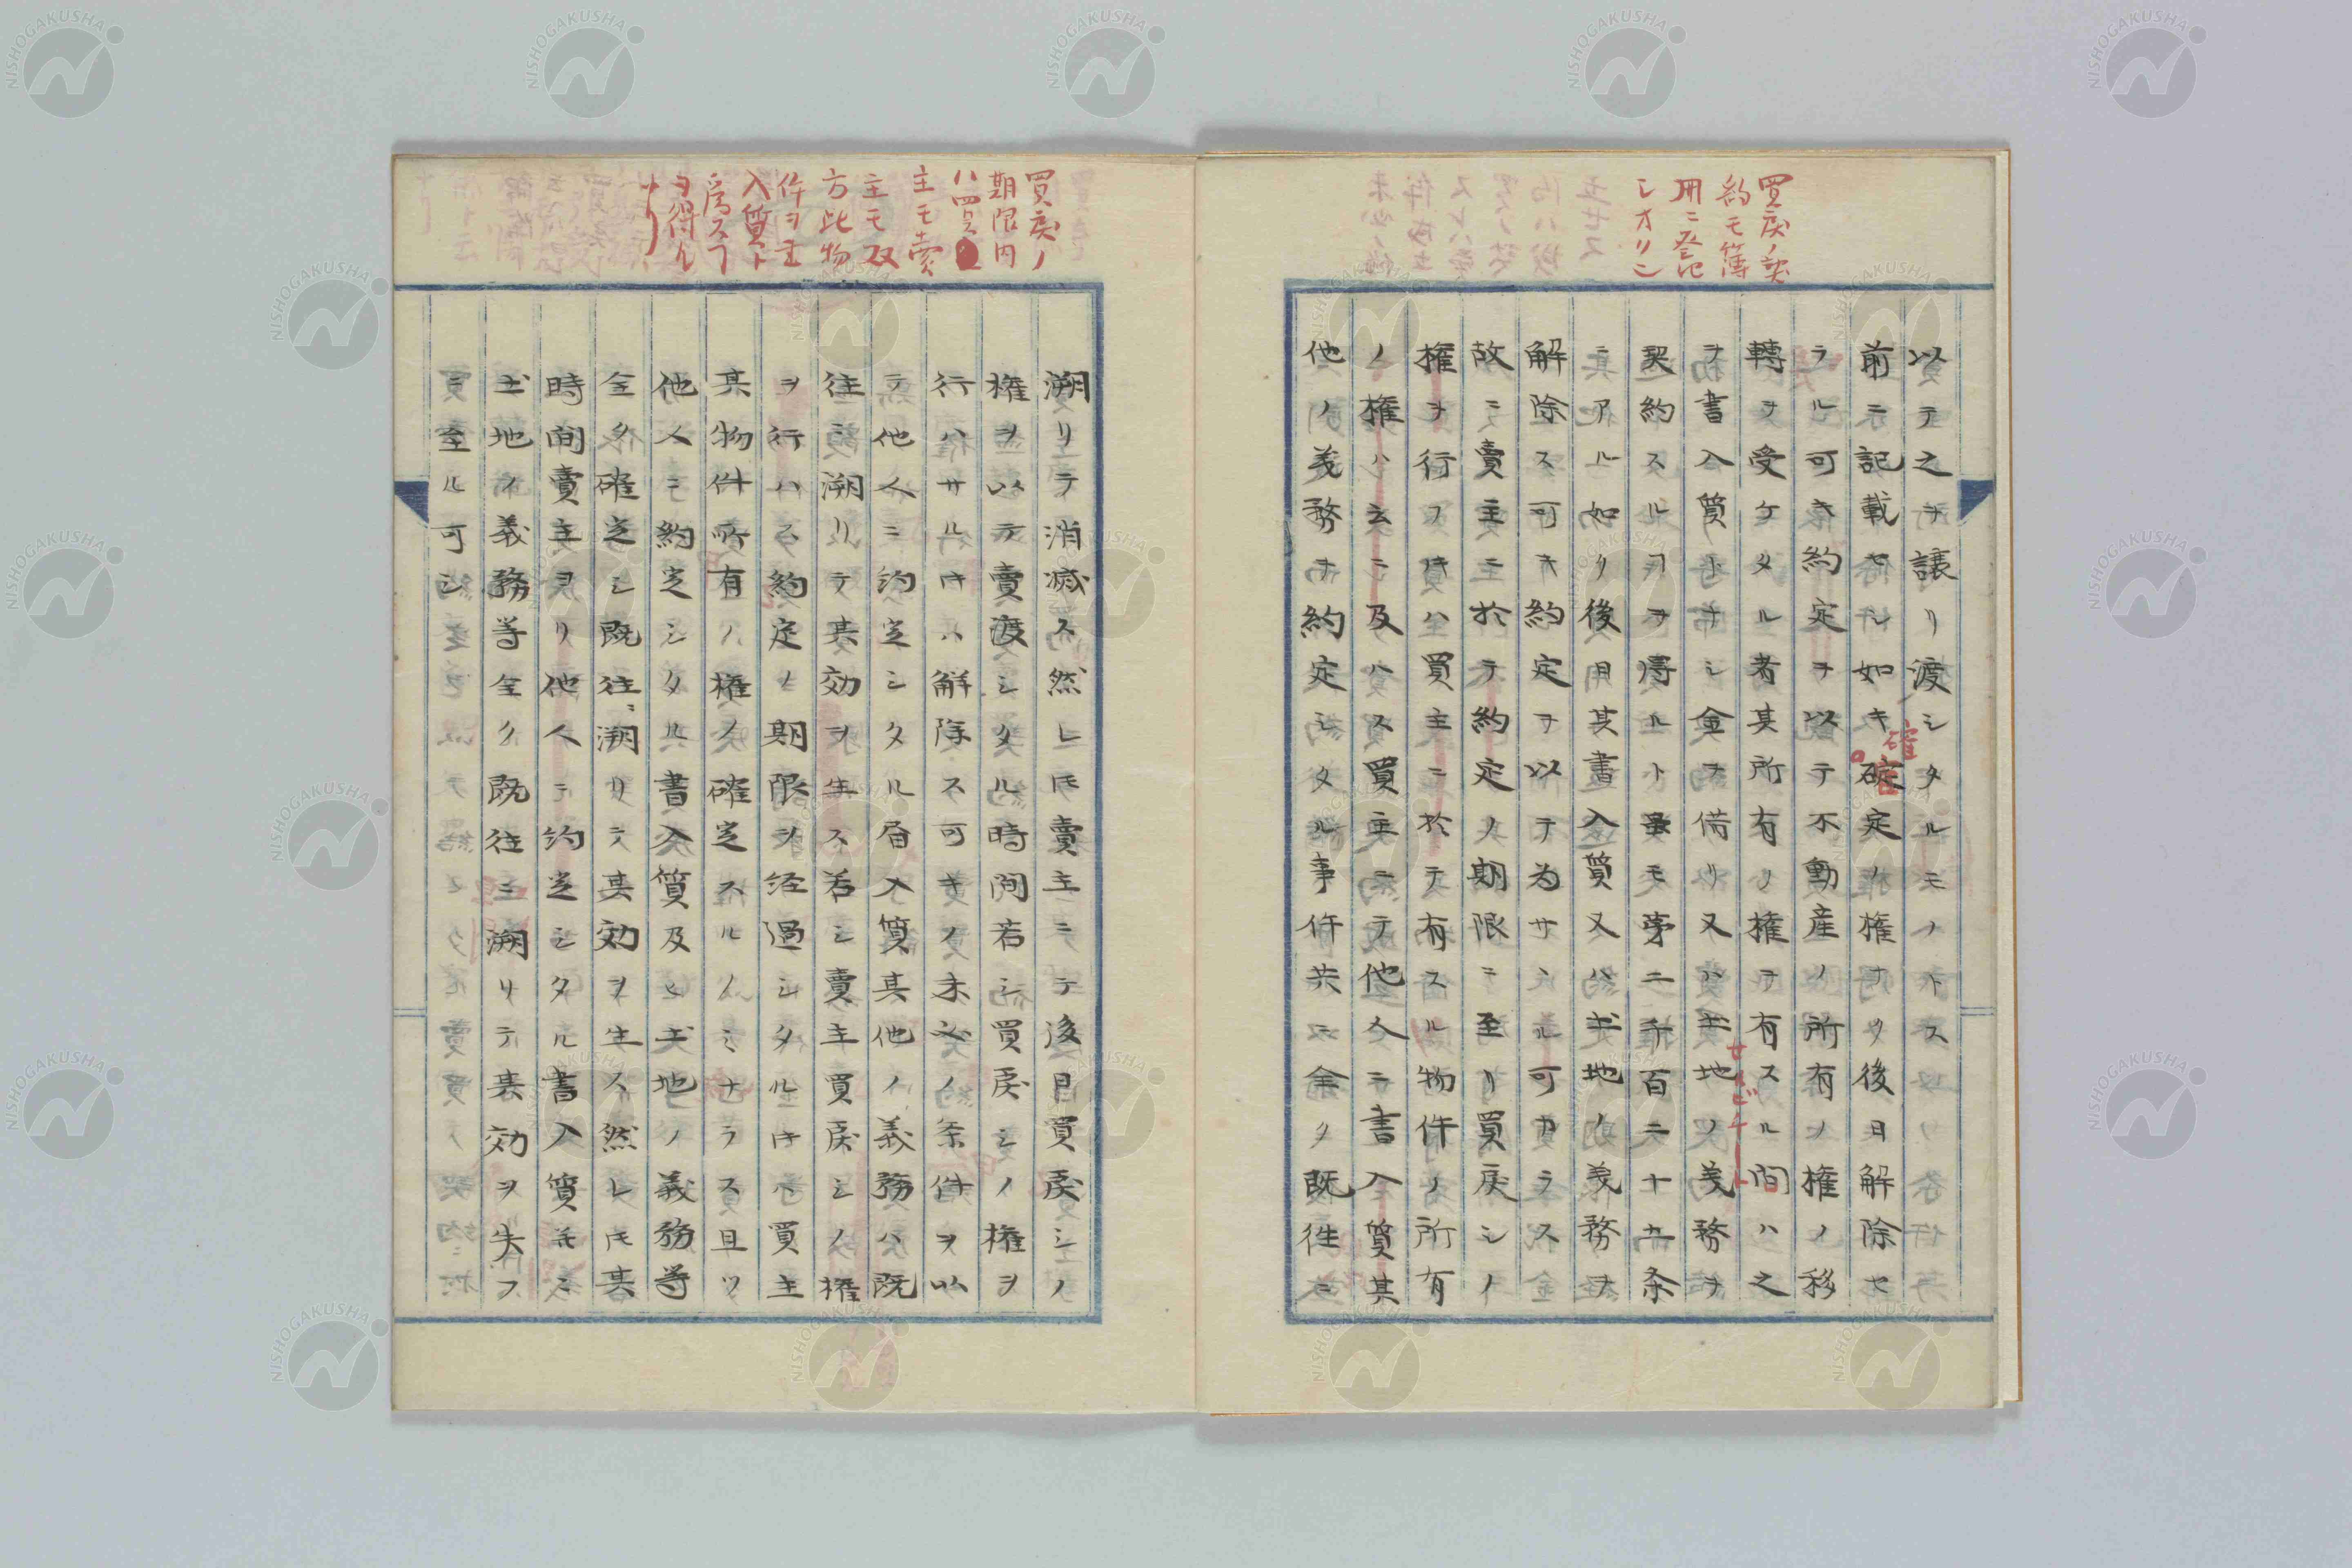 買戻ノ契
約モ簿
冊ニ登記
シオリシ
以テ之ヲ譲リ渡シタルモノトス
前ニ記載セル如キ確定ノ権ナリ後日解除セ
確
ラル可キ約定ヲ以テ不動産ノ所有ノ権ノ移
轉ヲ受ケタル者其所有ノ権ヲ有スル間ハ之
ヲ書入質トナシ金ヲ借リ又ハ土地ノ義務ヲ
契約スルヿヲ得ルト雖モ第二千百二十五条
ニアル如ク後日其書入質又ハ土地ノ義務ヲ
解除ス可キ約定ヲ以テ為サヽル可カラス
故ニ賣主ニ於テ約定ノ期限ニ至リ買戻シノ
権ヲ行フ時ハ買主ニ於テ有スル物件ノ所有
ノ権ハ云ニ及ハス買主ニテ他人ニ書入質其
他ノ義務ヲ約定シタル事件共ニ全ク既徃ニ
買戻ノ
期限内
ハ
主モ賣
主モ双
方此物
件ヲ書
入質ト
爲スヿ
ヲ得ル
ナリ
溯リテ消滅ス然レ𪜈賣主ニテ後日買戻シノ
権ヲ以テ賣渡シタル時間若シ買戻シノ権ヲ
行ハサル時ハ解除ス可キノ未必ノ条件ヲ以
テ他人ニ約定シタル書入質其他ノ義務ハ既
往ニ溯リテ其効ヲ生ス若シ賣主買戻シノ権
ヲ行ハス約定ノ期限ヲ経過シタル時ハ買主
其物件所有ノ権ノ確定スルノミナラス且ツ
他人ニ約定シタル書入質及ヒ土地ノ義務等
全ク確定シ既往ニ溯リテ其効ヲ生ス然レ𪜈其
時間賣主ヨリ他人ニ約定シタル書入質並ニ
土地ノ義務等全ク既往ニ溯リテ其効ヲ失フ
ニ至ル可シ